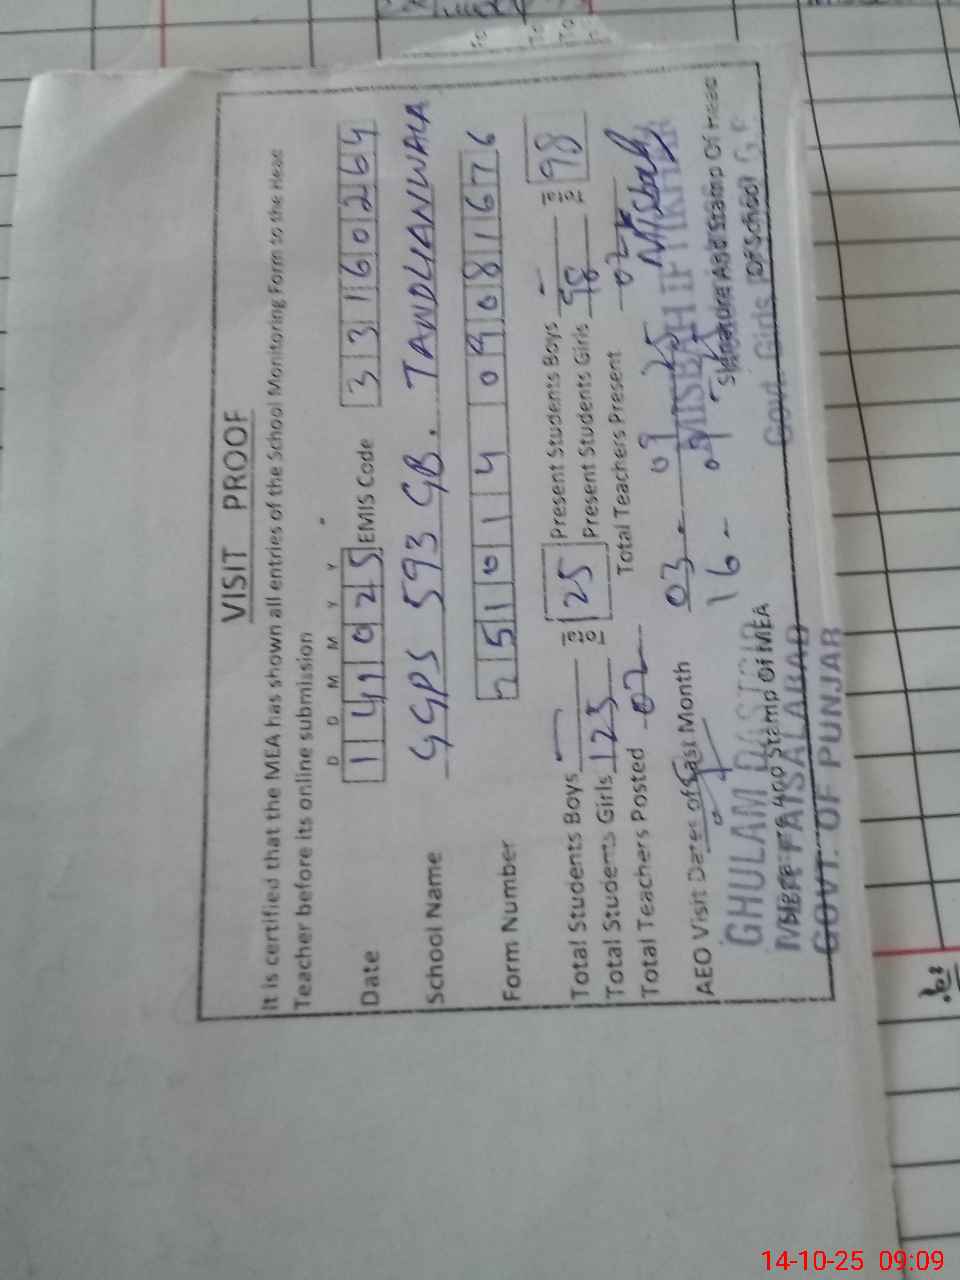 VISIT PROOF
It is certified that the MEA has shown all entries of the School Monitoring Form to the Head
Teacher before its online submission
D D M M Y Y
Date 141025 EMIS Code 33160264
School Name GGPS 593 GB. TANDLIANWALA
Form Number 25101409081676
Total Students Boys — Present Students Boys —
Total Students Girls 125 125 Present Students Girls 98 98
Total Teachers Posted 02 Total Teachers Present 02
Misbah
AEO Visit Dates of Last Month 03 - 09 - 25
16 - 09 - 25
MISBAH IFTIKHAR
GHULAM DASTGIR
Signature And Stamp Of MEA
Signature And Stamp Of Head
MEA FAISALABAD
Of School
Govt. Girls
GOVT. OF PUNJAB
14-10-25 09:09